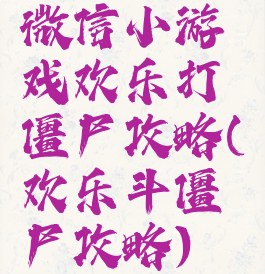 微信小游
戏欢乐打
僵尸攻略(
欢乐斗僵
尸攻略)